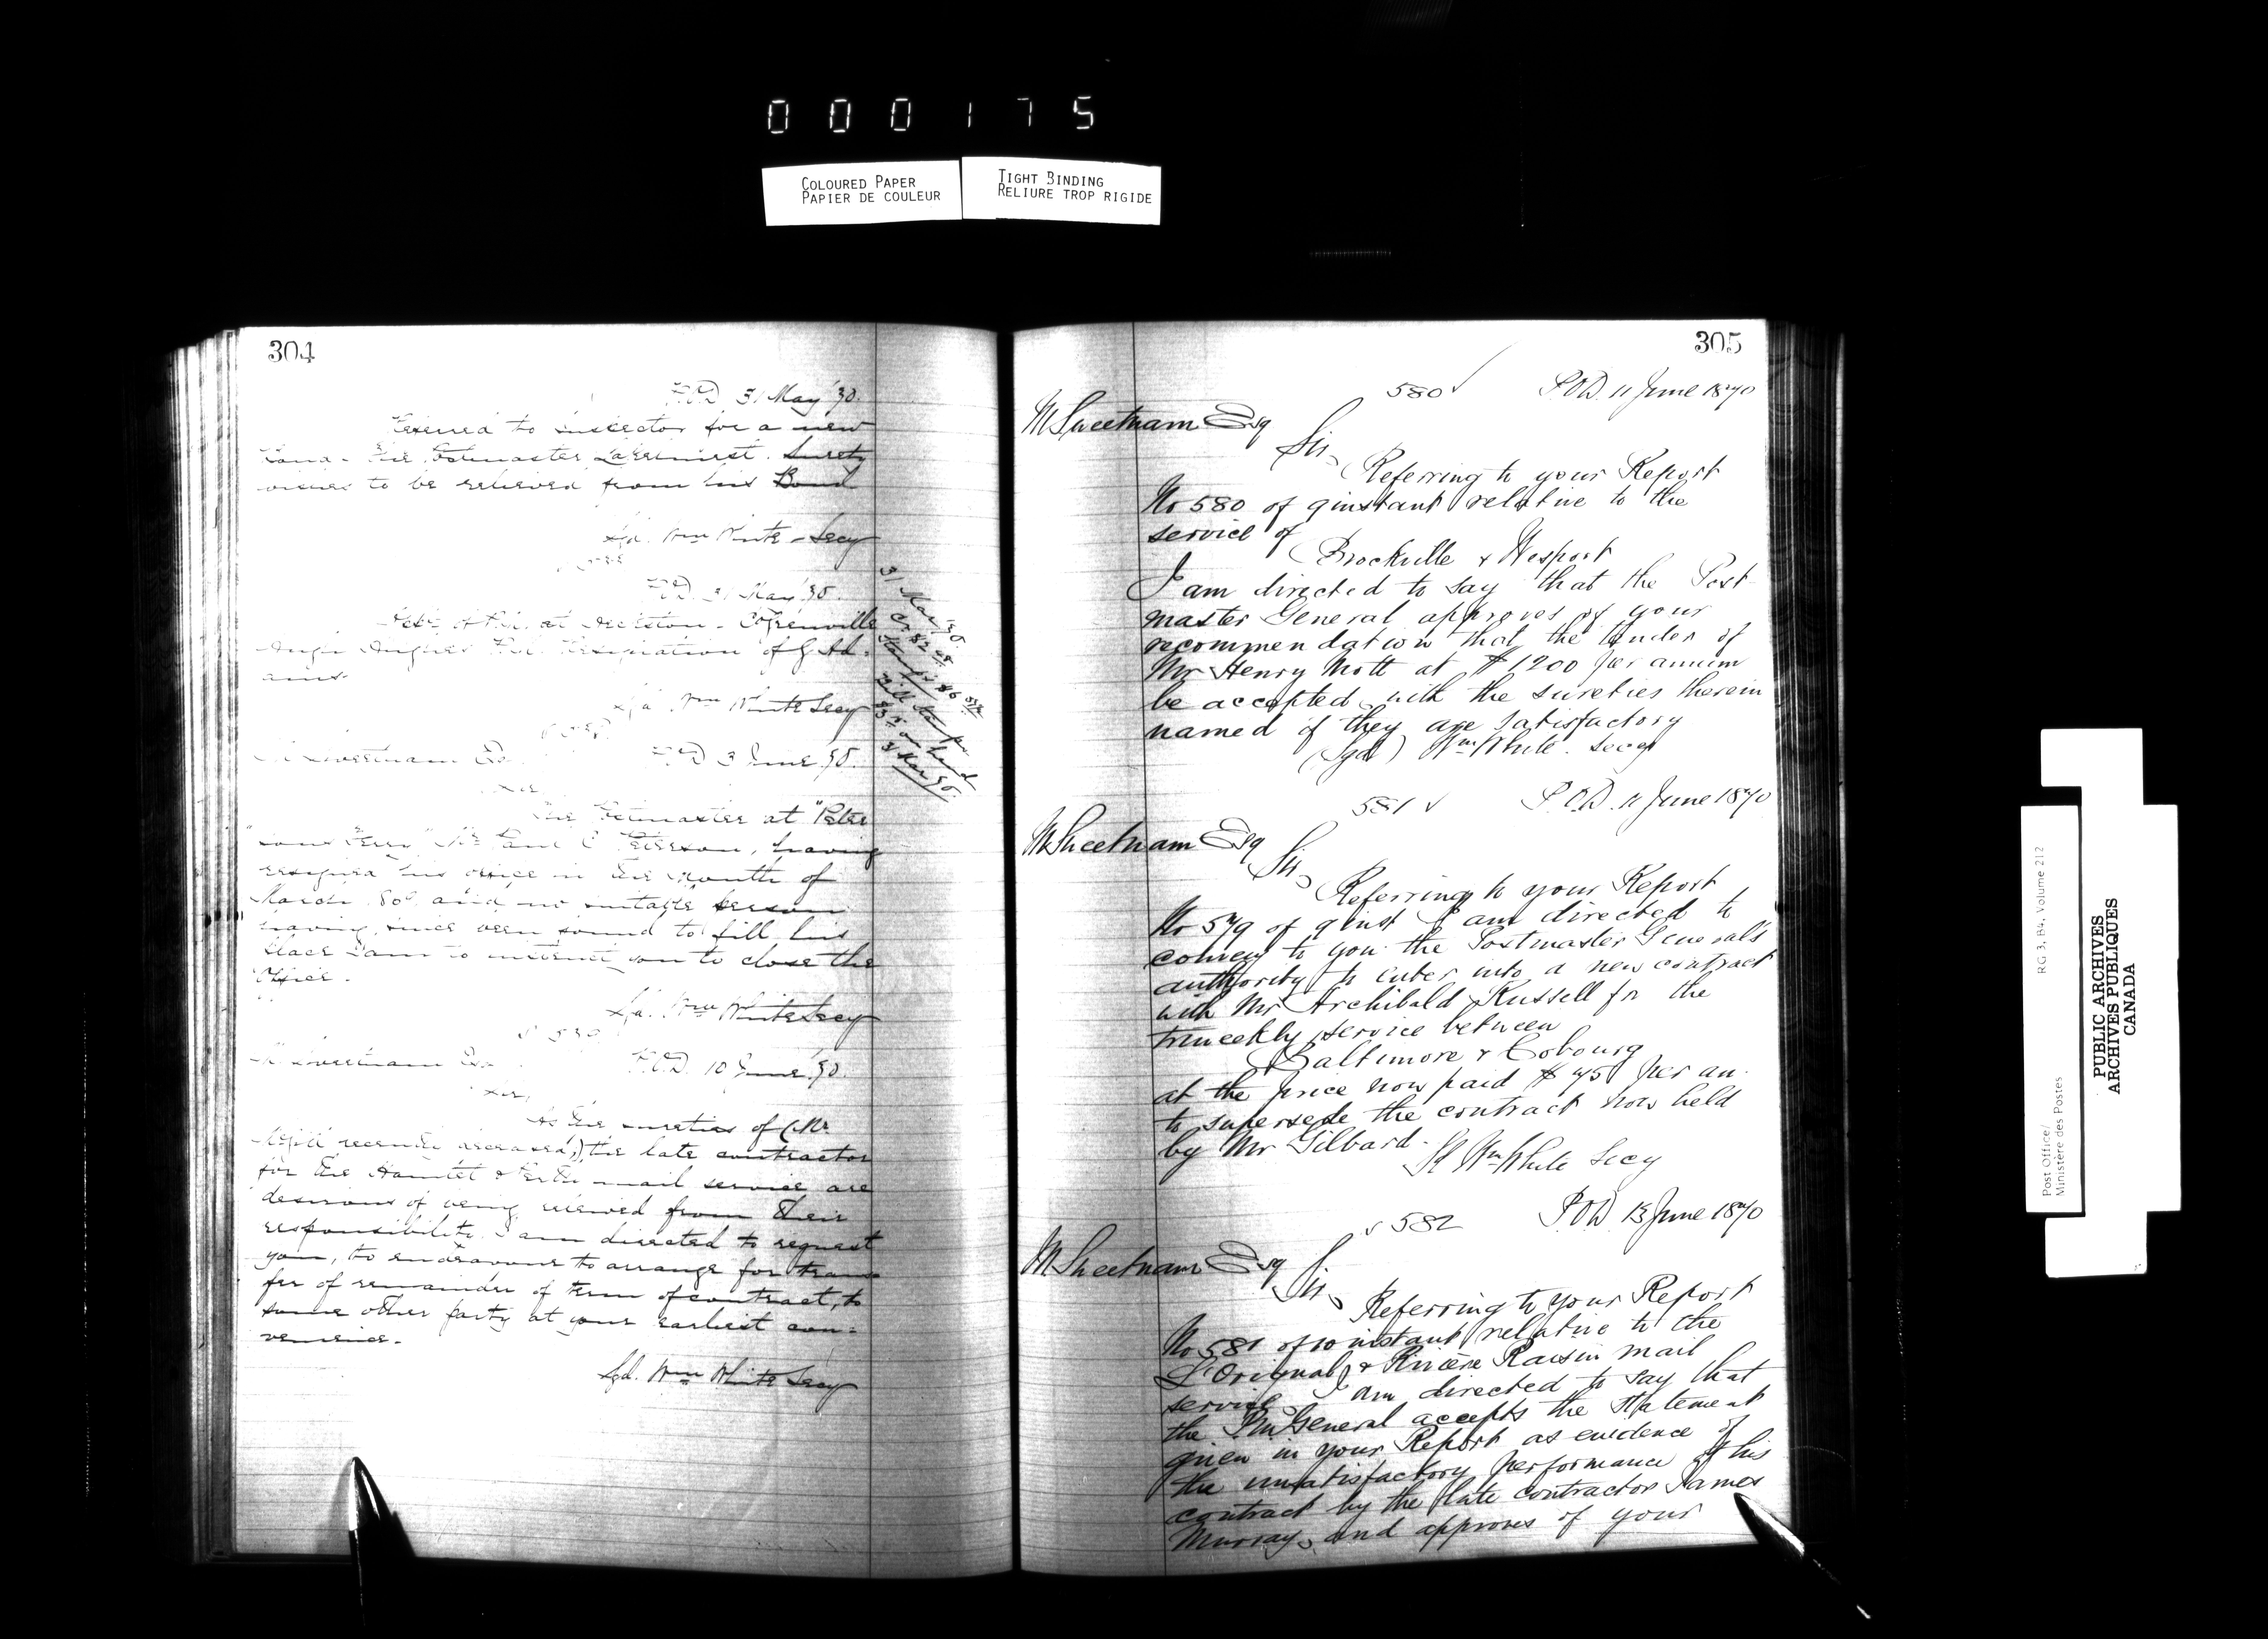 000175
COLOURED PAPER
PAPIER DE COULEUR
TIGHT BINDING
RELIURE TROP RIGIDE
304
P.O.D 31 May '90.
to Inspector for a new
Postmaster Surety
to be relieved from his Bond
Sgd. Wm White - Secy
P.O.D 31 May '90.
at Co Grenville
Resignation of G. Ad-
ams.
Sgd. Wm White Secy
31 May '90.
on hand
M Sweetnam Esq. P.O.D 3 June '90.
Sir
The Postmaster at "Peter
sons Ferry" Mr Paul C Peterson, having
resigned his office in the month of
March and no suitable person
having since been found to fill his
place I am to instruct you to close the
Office.
Sgd. Wm White Secy
M Sweetnam Esq P.O.D. 10 June '90.
Sir,
As the sureties of (Mr.
recently deceased) the late contractor
for the mail service are
desirous of being relieved from their
responsibility I am directed to request
you, to endeavour to arrange for trans-
fer of remainder of term of contract, to
some other party at your earliest con-
venience.
Sgd. Wm White Secy
305
580 ✓ P.O.D. 11 June 1890
M Sweetnam Esq
Sir,
Referring to your Report
No 580 of 9 instant relative to the
service of
Brockville & Wesport
I am directed to say that the Post-
master General approves of your
recommendation that the tender of
Mr Henry Mott at $1200 per annum
be accepted with the sureties therein
named if they are satisfactory
(Sgd) Wm White. Secy
581 ✓ P.O.D. 11 June 1890
M Sweetnam Esq
Sir,
Referring to your Report
No 579 of 9 inst I am directed to
convey to you the Postmaster General's
authority to enter into a new contract
with Mr Archibald Russell for the
triweekly service between
Baltimore & Cobourg
at the price now paid $75 per an.
to supersede the contract now held
by Mr Gilbard.
Sd Wm White Secy
✓ 582 P.O.D. 13 June 1890
M Sweetnam Esq
Sir,
Referring to your Report
No 581 of 10 instant relative to the
L'Orignal & Rivière Raisin mail
service I am directed to say that
the P.M. General accepts the statement
given in your Report as evidence of
the unsatisfactory performance of his
contract by the late contractor James
Murray, and approves of your
Post Office/
Ministère des Postes
RG 3, B4, Volume 212
PUBLIC ARCHIVES
ARCHIVES PUBLIQUES
CANADA